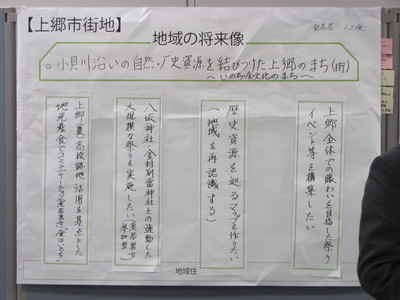 【上郷市街地】
地域の将来像
○小貝川沿いの自然・歴史資源を結びつけた上郷のまち(街)
～いのち・食文化のまち～
上郷全体での賑わいを目指した祭り
イベント等を構築したい
歴史資源を巡るマップを作りたい
(地域を再認識する)
八坂神社・金村別雷神社との連動した
大規模な祭りも実施したい(老若男女
参加型)
上郷(農)高校跡地 活用を基点とした
地元産食でコミュニケーション
地域住